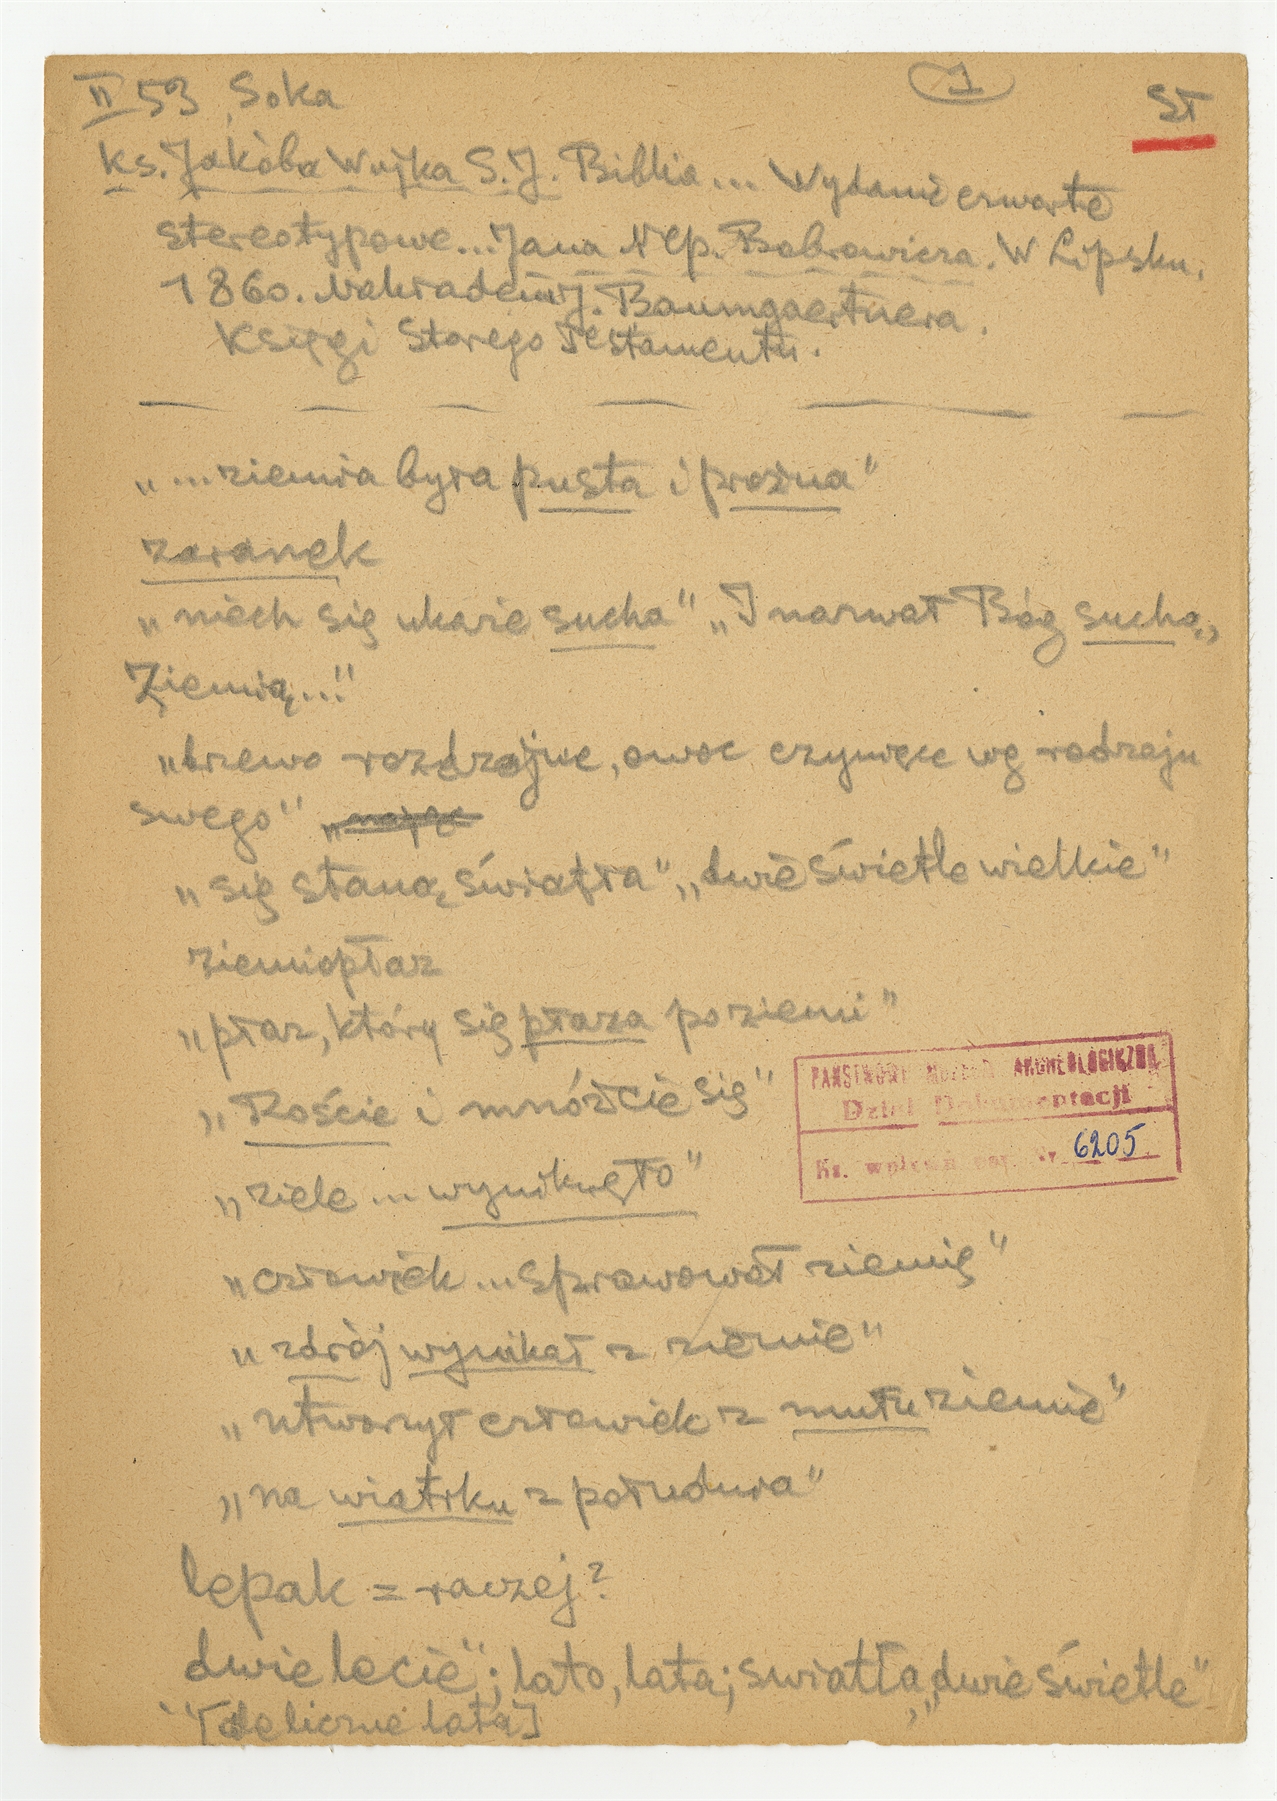 II 53 Soka
1
ST
Ks. Jakóba Wujka S.J. Biblia... Wydanie czwarte
stereotypowe... Jana Nep. Bobrowicza. W Lipsku,
1860. Nakładem J. Baumgaertnera.
Księgi Starego Testamentu.
„...ziemia była pusta i prożna”
zaranek
„niech się ukaże sucha” „I nazwał Bóg suchą,
Ziemią...”
„drzewo rodzajne, owoc czyniące wg rodzaju
swego”
„się staną światła” „dwie świetle wielkie”
ziemiopłaz
„płaz, który się płaza po ziemi”
„Roście i mnóżcie się”
„ziele ... wyniknęło”
„człowiek ... sprawował ziemię”
„zdrój wynikał z ziemie”
„utworzył człowiek z mułu ziemie”
„na wiatrku z południa”
lepak = raczej?
dwie lecie”; lato, lata; swiatła, „dwie świetle”
liczne lata]
PAŃSTWOWE MUZEUM ARCHEOLOGICZNE
Dział Dokumentacji
Ks. wpływu Nr 6205